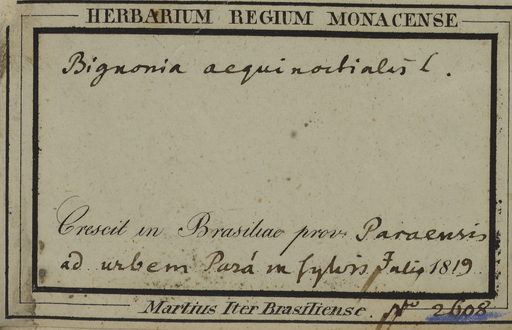 HERBARIUM REGIUM MONACENSE
Bignonia aequinoctialis L.
Crescit in Brasiliae prov. Paraensis
ad urbem Pará in sylvis, Julio 1819.
Martius Iter Brasiliense. No 2608